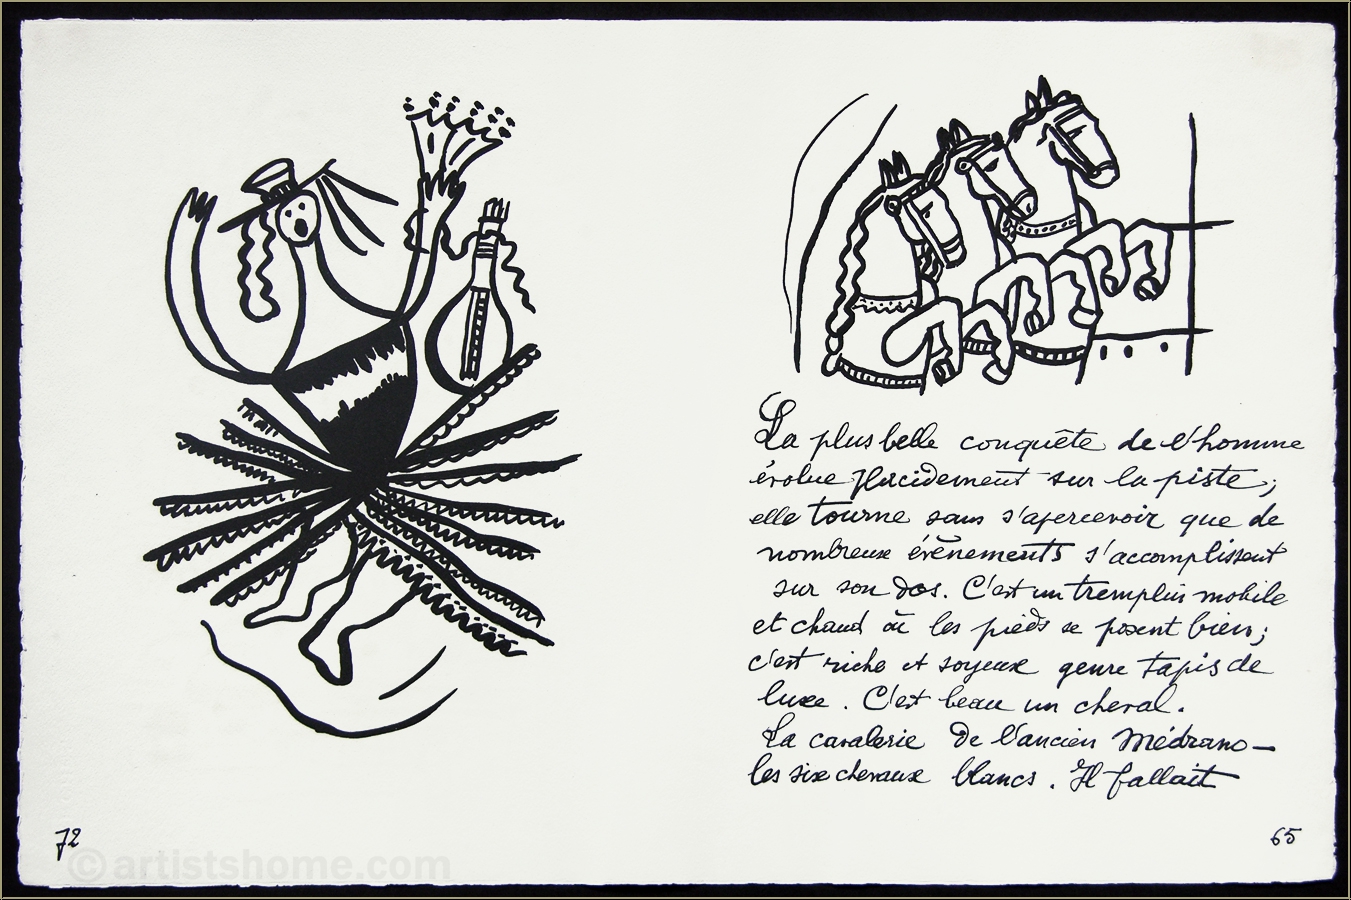 La plus belle conquête de l'homme
évolue placidement sur la piste;
elle tourne sans s'apercevoir que de
nombreux évènements s'accomplissent
sur son dos. C'est un tremplin mobile
et chaud où les pieds se posent bien;
c'est riche et soyeux genre tapis de
luxe. C'est beau un cheval.
La cavalerie de l'ancien Médrano—
les six chevaux blancs. Il fallait
72
65
©artistshome.com